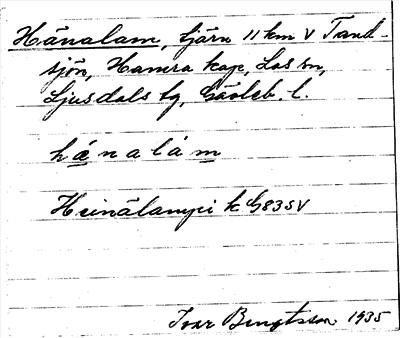 Hänalam, tjärn 11 km V Tand-
sjön, Hamra kap, Los sn,
Ljusdals tg, Gävleb. l.
hänalám
Heinälampi k G83SV
Ivar Bengtsson 1935